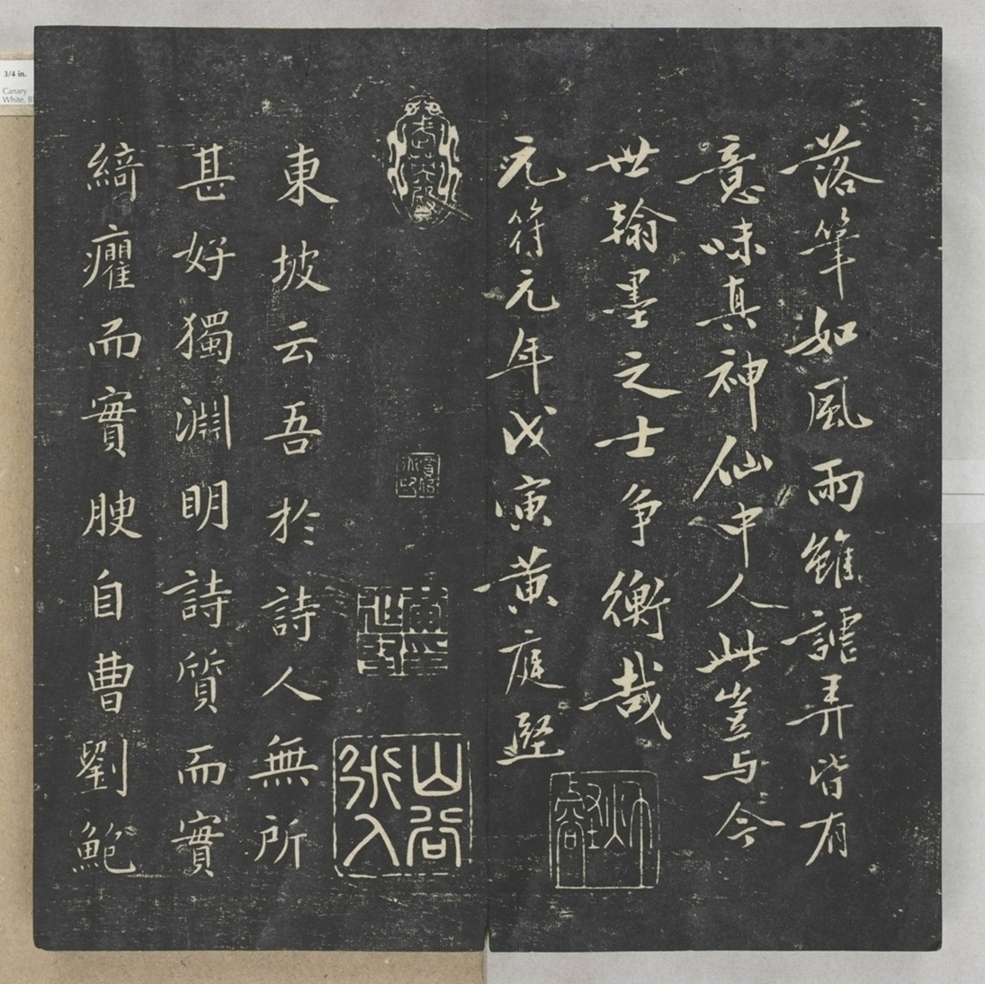 落筆如風雨雖謔弄皆有
意味真神仙中人此豈与今
世翰墨之士争衡哉
元符元年戊寅黄庭堅
山谷
東坡云吾於詩人無所
甚好獨淵明詩質而實
綺癯而實腴自曹劉鮑
3/4 in.
Canary